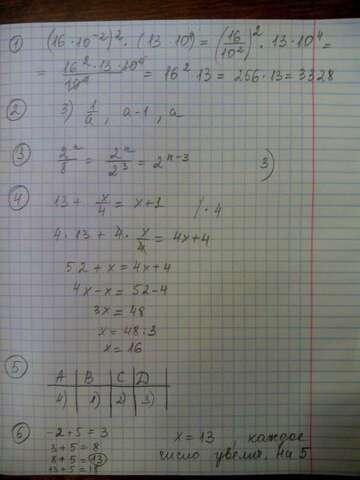 ① (16·10⁻²)²·(13·10⁴) = (16/10²)²·13·10⁴ =
= 16²·13·10⁴/10⁴ = 16²·13 = 256·13 = 3328
② 3) 1/a, a-1, a
③ 2ⁿ/8 = 2ⁿ/2³ = 2ⁿ⁻³ 3)
④ 13 + x/4 = x+1 /·4
4·13 + 4·x/4 = 4x+4
52 + x = 4x+4
4x-x = 52-4
3x = 48
x = 48:3
x = 16
⑤
A B C D
4) 1) 2) 3)
⑥ -2+5 = 3 x = 13 каждое
3+5 = 8 число увелич. на 5
8+5 = 13
13+5 = 18